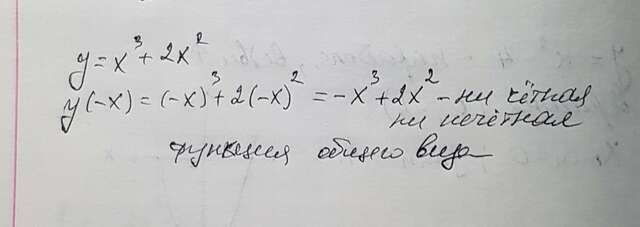 y = x³ + 2x²
y(-x) = (-x)³ + 2(-x)² = -x³ + 2x² - ни чётная
ни нечётная
функция общего вида